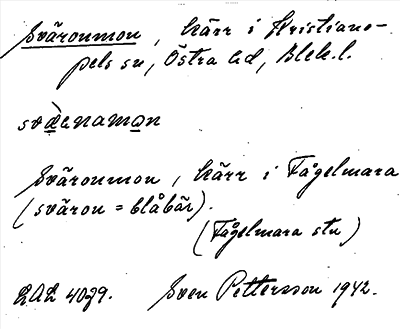 Sväroumon, kärr i Kristiano-
pels sn, Östra hd, Blek. l.
Sväroumon, kärr i Fågelmara
(svärou = blåbär).
(Fågelmara stn)
Sven Pettersson 1942.